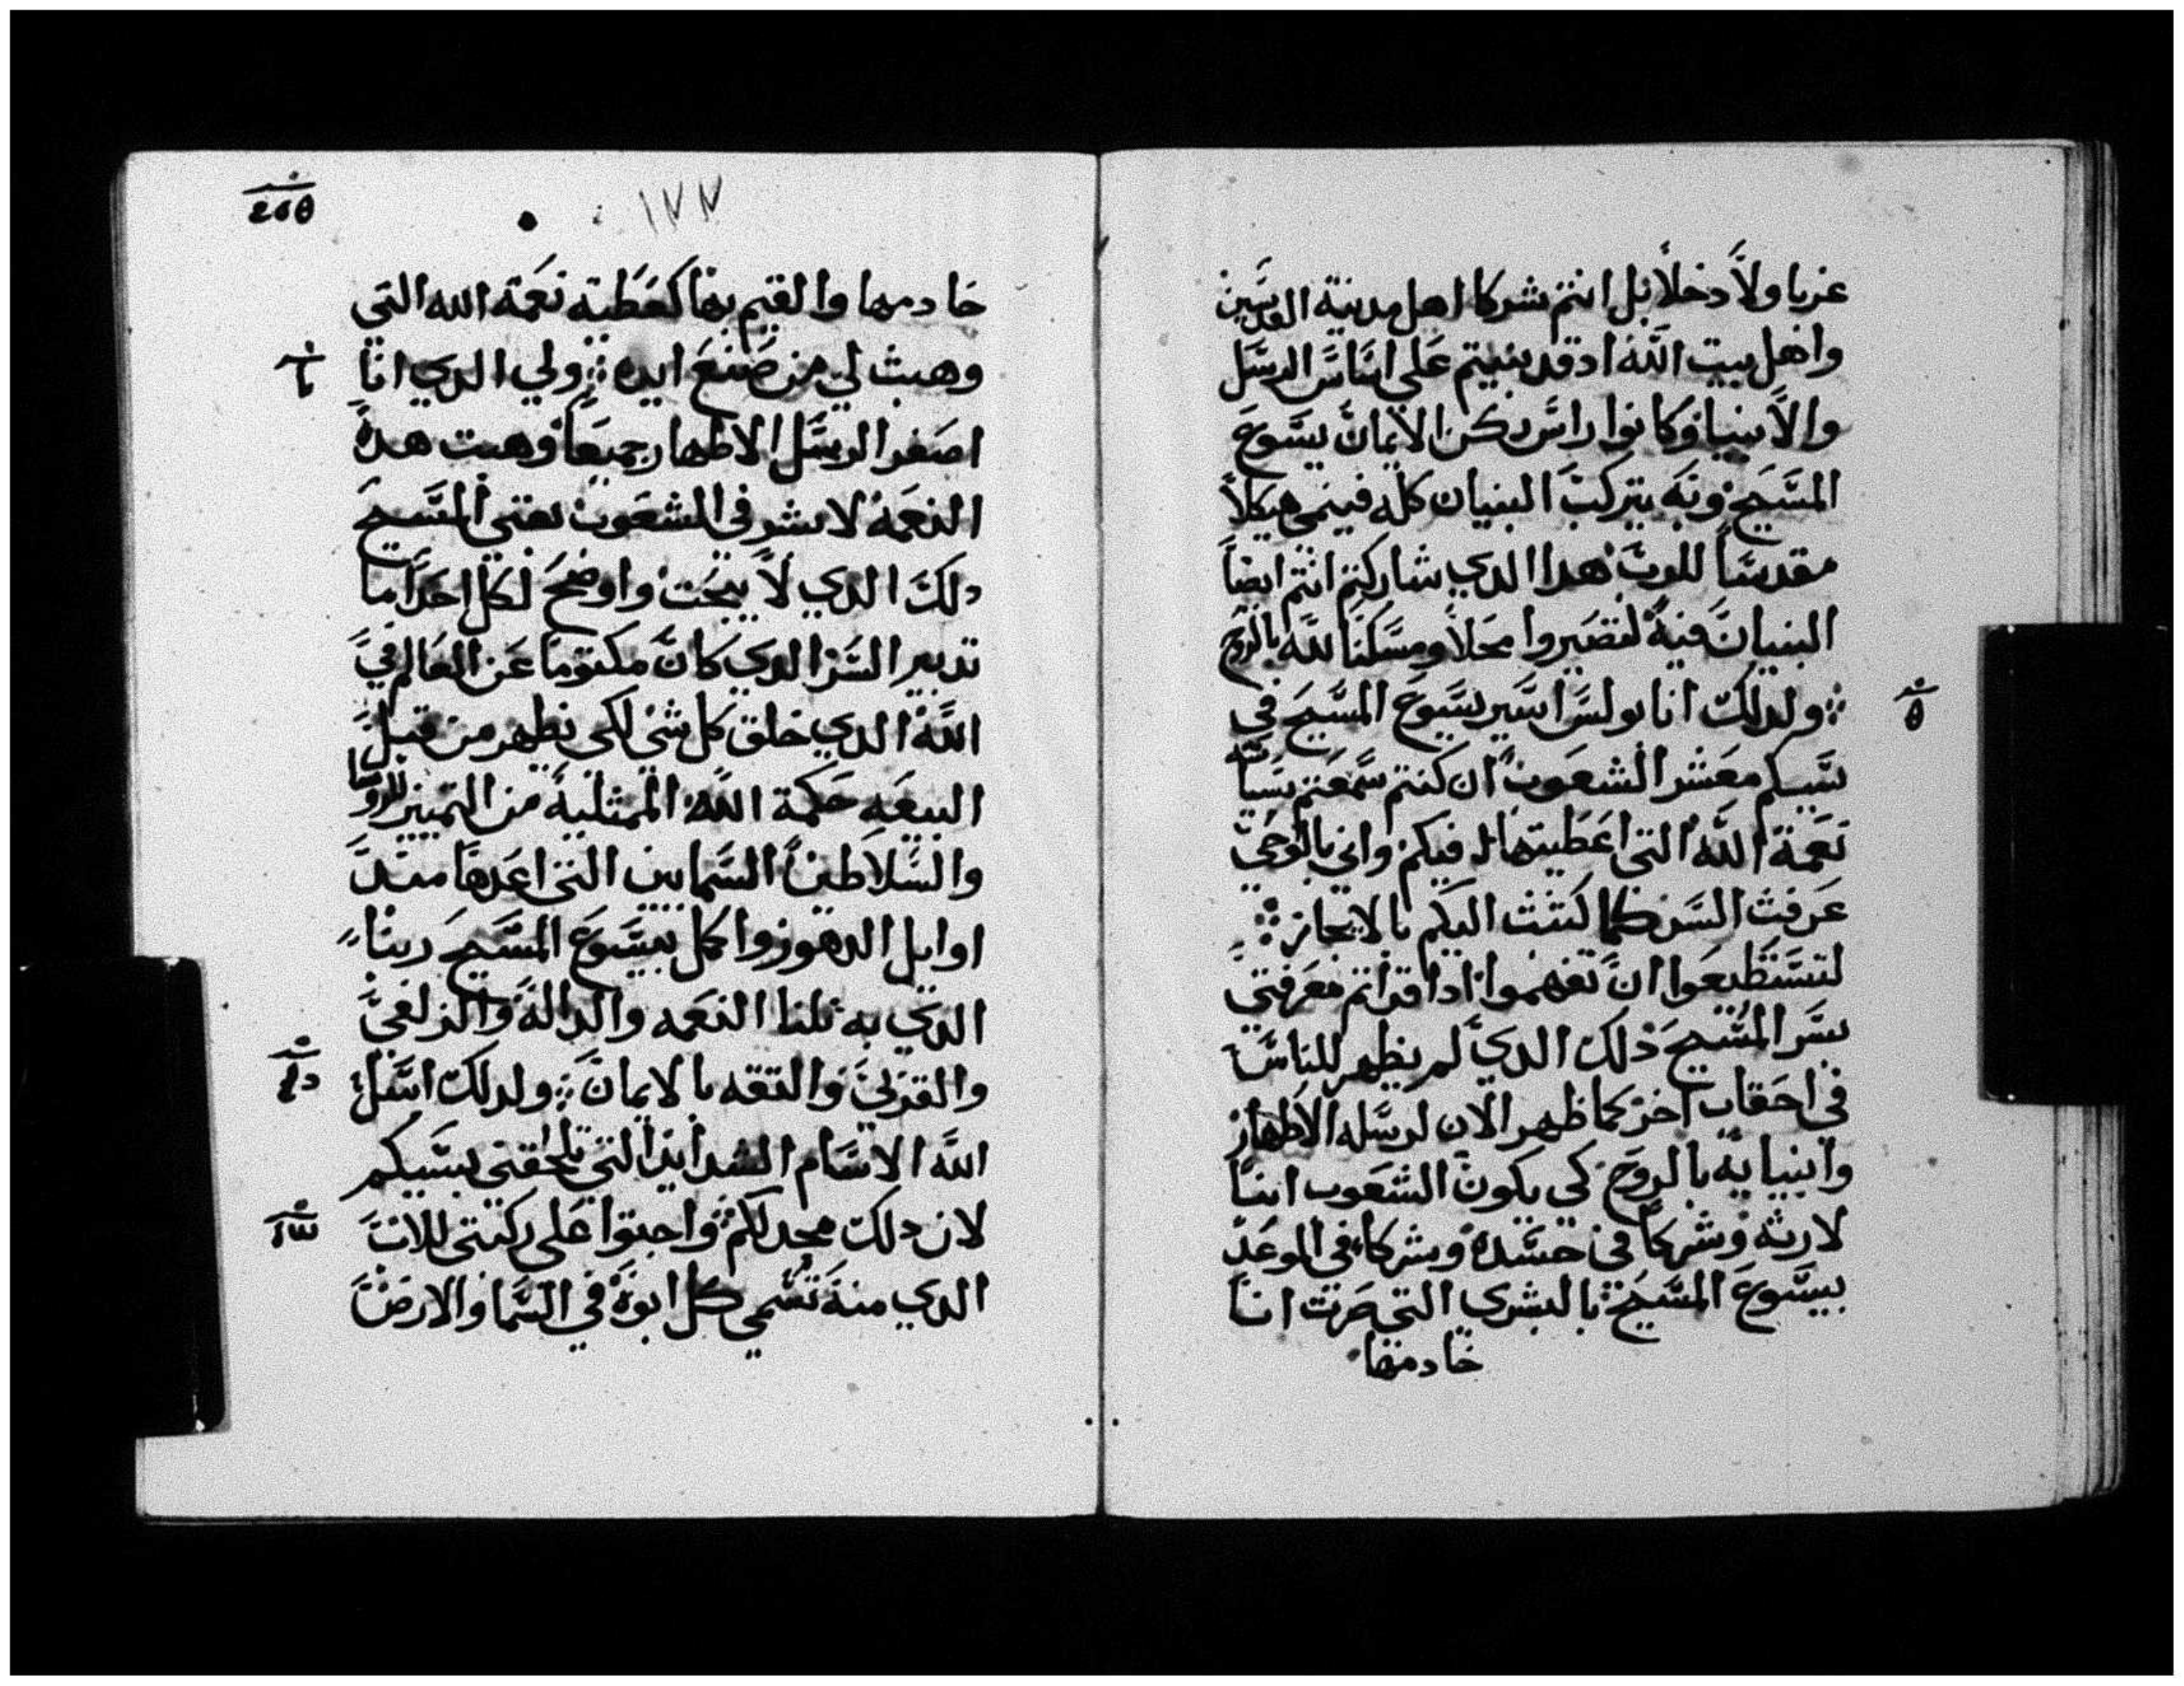 غربا ولا دخلا بل انتم شركا اهل مدينة القديسين
واهل بيت الله اد قد بنيتم على اساس الرسل
والانبيا وكانوا راس ركن الايمان يسوع
المسيح وبه يتركب البنيان كله فينمى هيكلا
مقدسا للرب هدا الدي شاركتم انتم ايضا
البنيان فيه لتصيروا محلا ومسكنا لله بالروح
ولدلك انا بولس اسير يسوع المسيح في
سبيكم معشر الشعوب ان كنتم سمعتم بسياسة
نعمة الله التي اعطيتها فيكم واني بالوحي
عرفت السر كما كتبت اليكم بالايجاز
لتستطيعوا ان تفهموا ادا قراتم معرفتي
بسر المسيح دلك الدي لم يظهر للناس
في احقاب اخر كما ظهر الان لرسله الاطهار
وانبيايه بالروح كي يكون الشعوب ابنا
لارثه وشركا في جسده وشركا في الموعد
بيسوع المسيح بالبشرى التي صرت انا
خادمها
١٧٧
خادمها والقيم بها كعطية نعمة الله التي
وهبت لي من صنع ايده ولي الدي انا
اصغر الرسل الاطهار جميعا وهبت هده
النعمة لابشر في الشعوب بغنى المسيح
دلك الدي لا يبحت واوضح لكل احد ما
تدبير السر الدي كان مكتوما عن العالم في
الله الدي خلق كل شي لكي تظهر من قبل
البيعه حكمة الله الممتلية من التمييز للروسا
والسلاطين السمايين التي اعدها مند
اوايل الدهور واكمل بيسوع المسيح ربنا
الدي به نلنا النعمه والدالة والزلفى
والقربى والتقه بالايمان ولدلك اسل
الله الا اسام الشدايد التي تلحقني بسبيكم
لان دلك مجد لكم واجتوا على ركبتي للاب
الدي منه تسمى كل ابوة في السما والارض